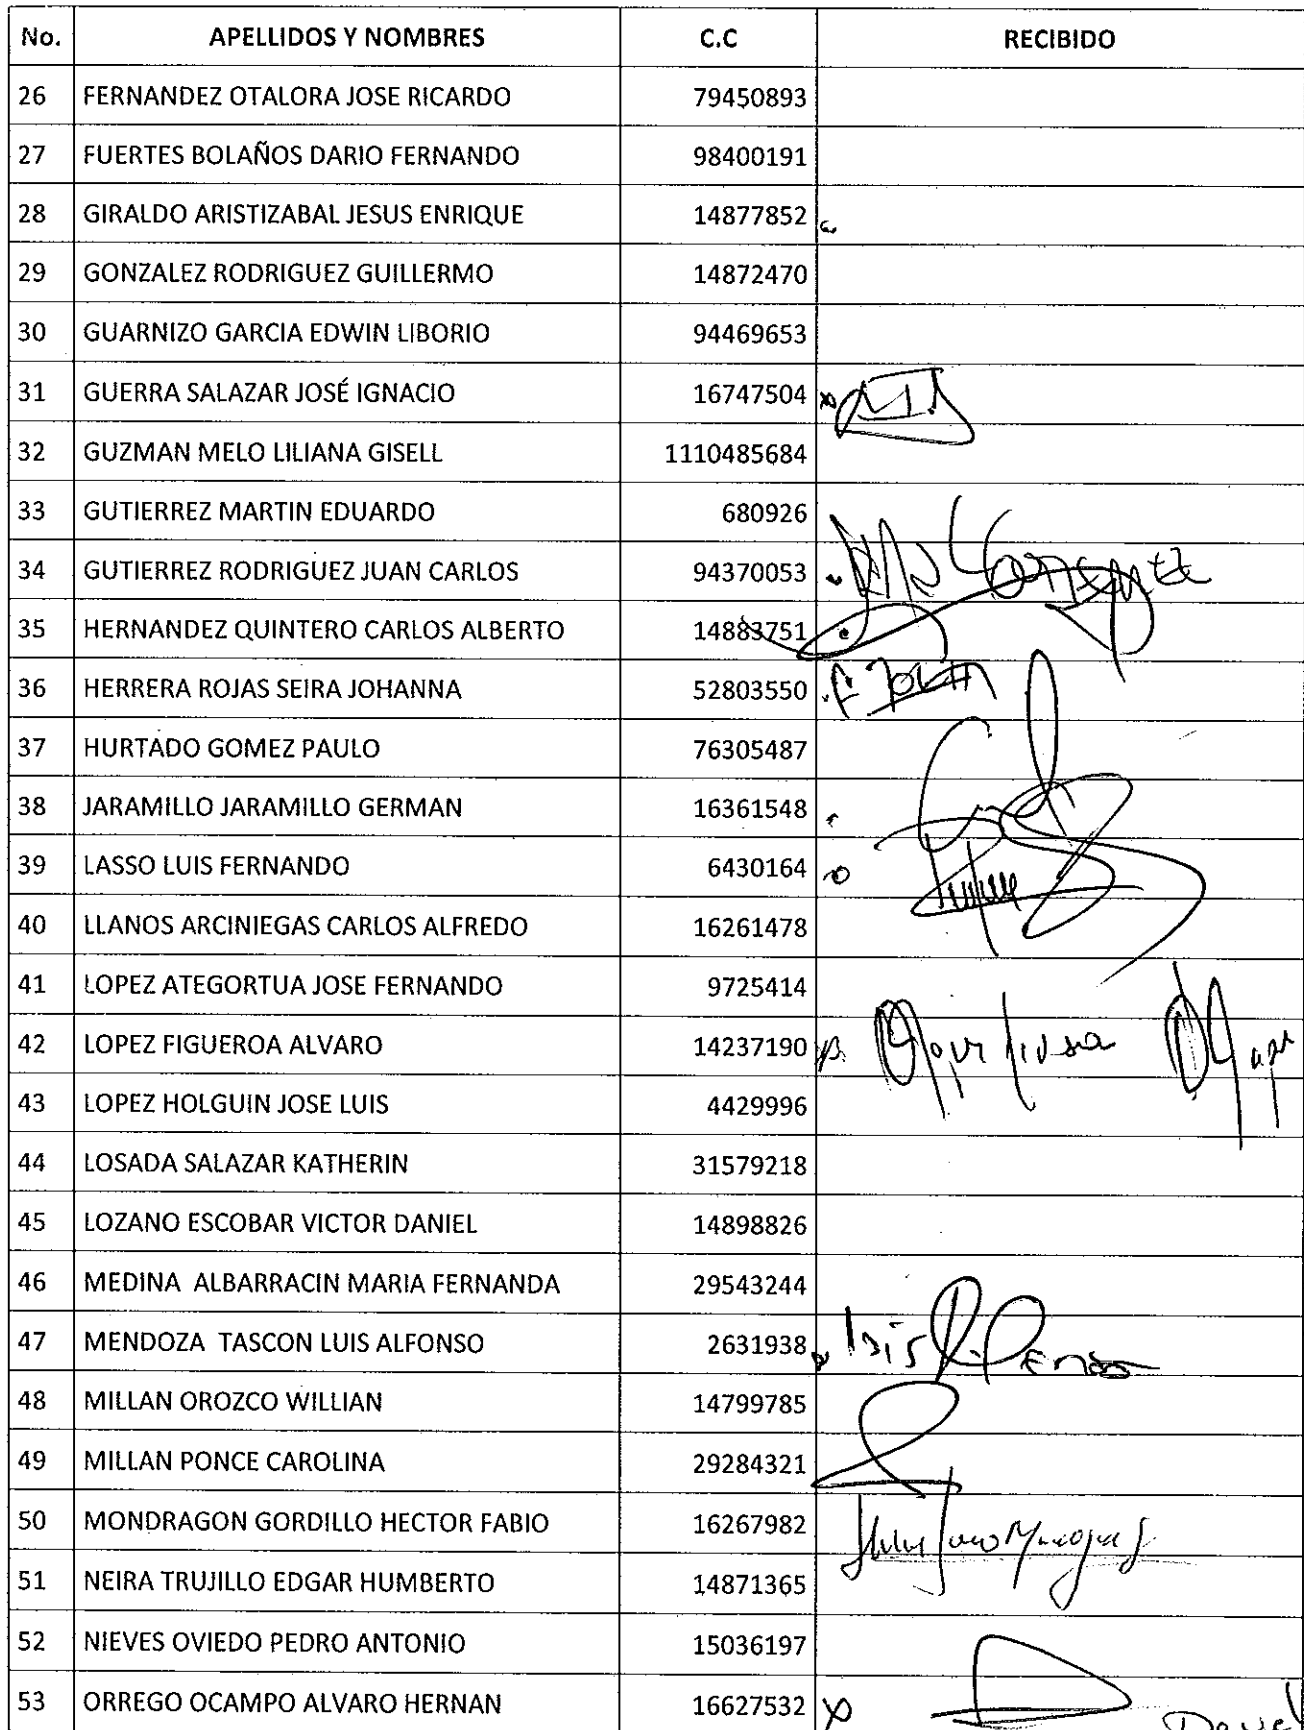 No. APELLIDOS Y NOMBRES C.C RECIBIDO
26 FERNANDEZ OTALORA JOSE RICARDO 79450893
27 FUERTES BOLAÑOS DARIO FERNANDO 98400191
28 GIRALDO ARISTIZABAL JESUS ENRIQUE 14877852
29 GONZALEZ RODRIGUEZ GUILLERMO 14872470
30 GUARNIZO GARCIA EDWIN LIBORIO 94469653
31 GUERRA SALAZAR JOSÉ IGNACIO 16747504
32 GUZMAN MELO LILIANA GISELL 1110485684
33 GUTIERREZ MARTIN EDUARDO 680926
34 GUTIERREZ RODRIGUEZ JUAN CARLOS 94370053
35 HERNANDEZ QUINTERO CARLOS ALBERTO 14883751
36 HERRERA ROJAS SEIRA JOHANNA 52803550
37 HURTADO GOMEZ PAULO 76305487
38 JARAMILLO JARAMILLO GERMAN 16361548
39 LASSO LUIS FERNANDO 6430164
40 LLANOS ARCINIEGAS CARLOS ALFREDO 16261478
41 LOPEZ ATEGORTUA JOSE FERNANDO 9725414
42 LOPEZ FIGUEROA ALVARO 14237190
43 LOPEZ HOLGUIN JOSE LUIS 4429996
44 LOSADA SALAZAR KATHERIN 31579218
45 LOZANO ESCOBAR VICTOR DANIEL 14898826
46 MEDINA ALBARRACIN MARIA FERNANDA 29543244
47 MENDOZA TASCON LUIS ALFONSO 2631938
48 MILLAN OROZCO WILLIAN 14799785
49 MILLAN PONCE CAROLINA 29284321
50 MONDRAGON GORDILLO HECTOR FABIO 16267982
51 NEIRA TRUJILLO EDGAR HUMBERTO 14871365
52 NIEVES OVIEDO PEDRO ANTONIO 15036197
53 ORREGO OCAMPO ALVARO HERNAN 16627532